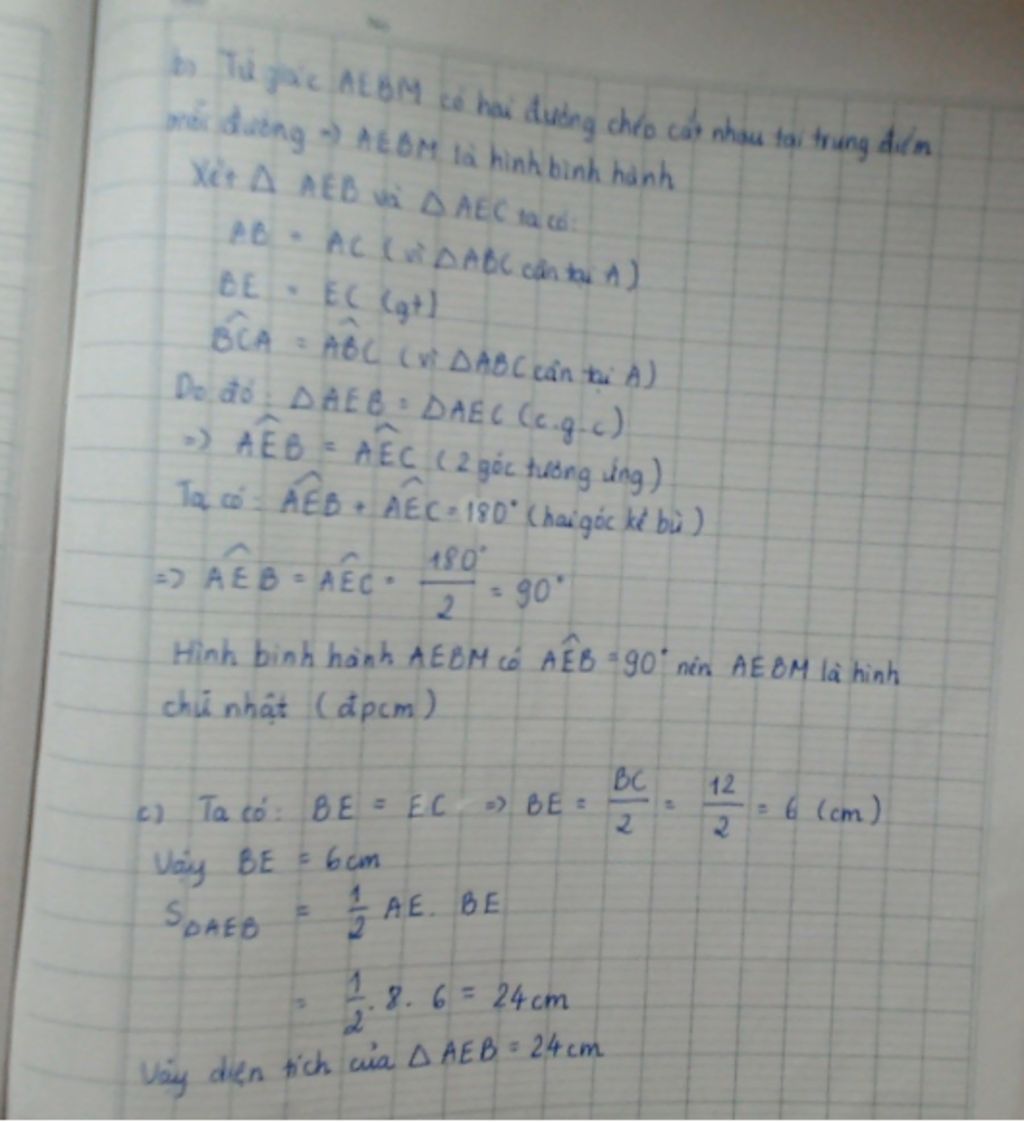 b) Tứ giác AEBM có hai đường chéo cắt nhau tại trung điểm
mỗi đường => AEBM là hình bình hành
Xét Δ AEB và Δ AEC ta có:
AB = AC (vì ΔABC cân tại A)
BE = EC (gt)
BCA = ABC (vì ΔABC cân tại A)
Do đó: ΔAEB = ΔAEC (c.g.c)
=> AEB = AEC (2 góc tương ứng)
Ta có: AEB + AEC = 180° (hai góc kề bù)
=> AEB = AEC = 180°/2 = 90°
Hình bình hành AEBM có AEB = 90° nên AEBM là hình
chữ nhật (đpcm)
c) Ta có: BE = EC => BE = BC/2 = 12/2 = 6 (cm)
Vậy BE = 6cm
SΔAEB = 1/2 AE. BE
= 1/2. 8. 6 = 24cm
Vậy diện tích của Δ AEB = 24cm